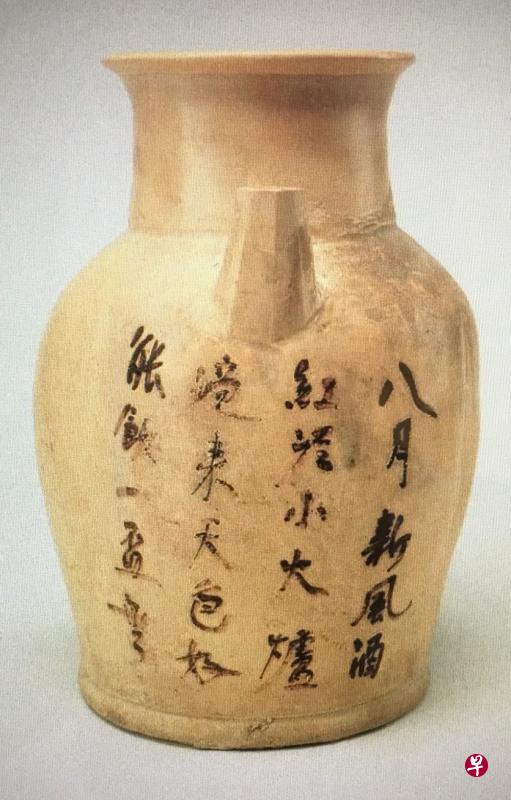 八月新風酒
紅泥小火爐
晚来天色好
能飲一盃無
早